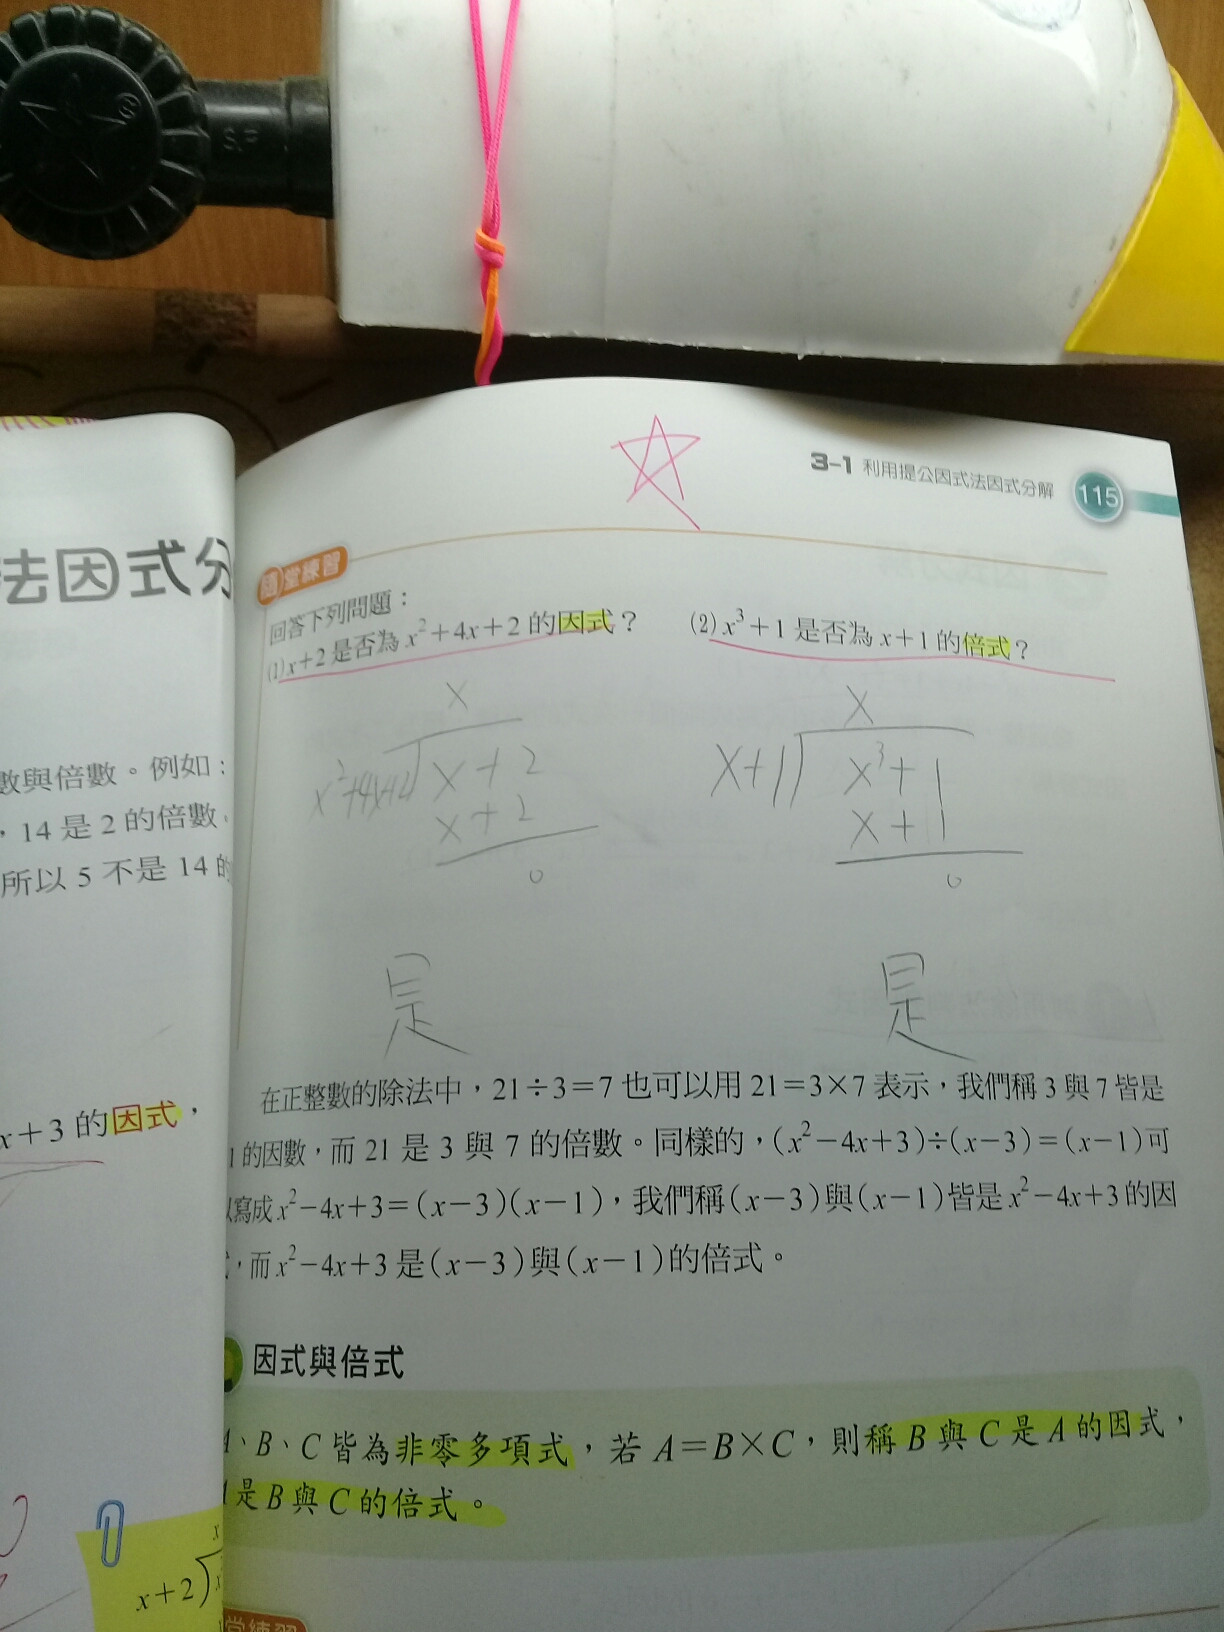 S.P
®
法因式分
數與倍數。例如：
，14是2的倍數，
所以5不是14的
x+3的因式，
x
x+2
3-1 利用提公因式法因式分解 115
隨堂練習
回答下列問題：
(1) x+2是否為x²+4x+2的因式？ (2) x³+1是否為x+1的倍式？
x x
x²+4x+2 x+2 x+1 x³+1
x+2 x+1
0 0
是 是
在正整數的除法中，21÷3=7也可以用21=3×7表示，我們稱3與7皆是
1的因數，而21是3與7的倍數。同樣的，(x²−4x+3)÷(x−3)=(x−1)可
以寫成x²−4x+3=(x−3)(x−1)，我們稱(x−3)與(x−1)皆是x²−4x+3的因
，而x²−4x+3是(x−3)與(x−1)的倍式。
因式與倍式
A、B、C皆為非零多項式，若A=B×C，則稱B與C是A的因式，
是B與C的倍式。
堂練習